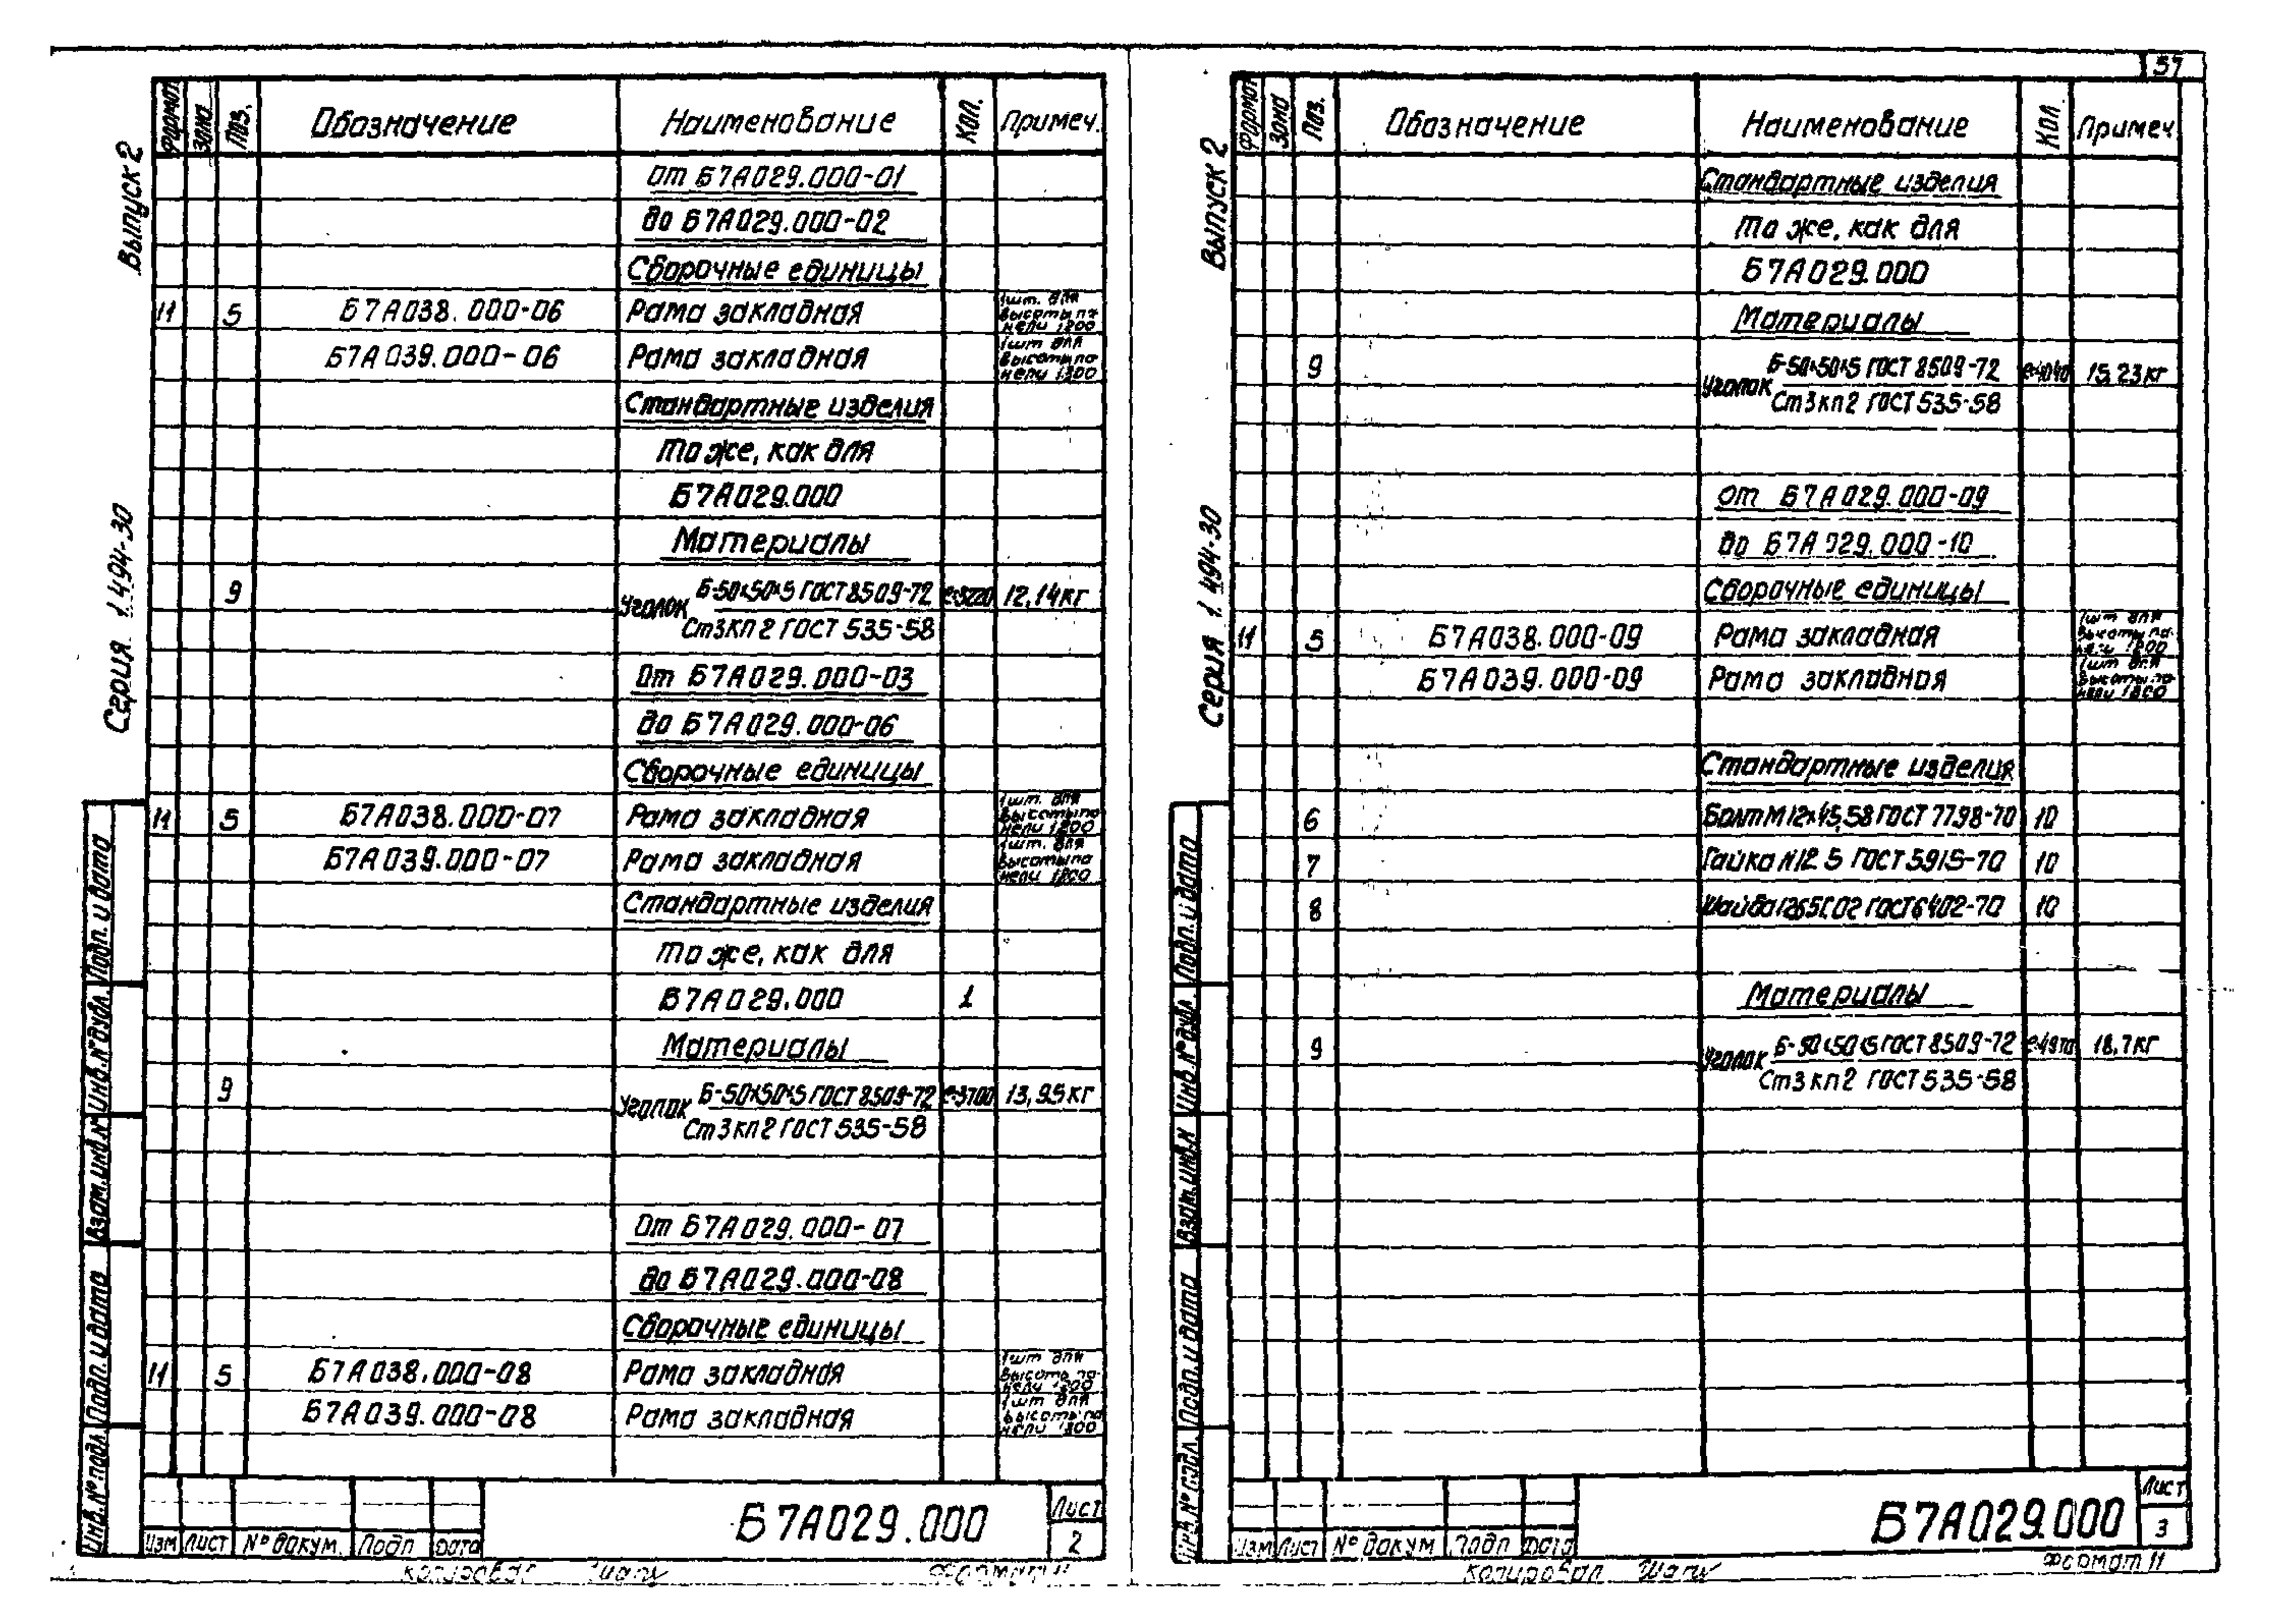 57
Выпуск 2
Серия 1.494-30
Формат Зона Поз. Обозначение Наименование Кол. Примеч.
От Б7А029.000-01
до Б7А029.000-02
Сборочные единицы
11 5 Б7А038.000-06 Рама закладная 1шт. для высоты панели 1200
Б7А039.000-06 Рама закладная 1шт для высоты панели 1800
Стандартные изделия
То же, как для
Б7А029.000
Материалы
9 Уголок Б-50×50×5 ГОСТ 8509-72 ℓ=3220 12,14кг
Ст3кп2 ГОСТ 535-58
От Б7А029.000-03
до Б7А029.000-06
Сборочные единицы
11 5 Б7А038.000-07 Рама закладная 1шт. для высоты панели 1200
Б7А039.000-07 Рама закладная 1шт. для высоты панели 1800
Стандартные изделия
То же, как для
Б7А029.000 1
Материалы
9 Уголок Б-50×50×5 ГОСТ 8509-72 ℓ=3700 13,95кг
Ст3кп2 ГОСТ 535-58
От Б7А029.000-07
до Б7А029.000-08
Сборочные единицы
11 5 Б7А038.000-08 Рама закладная 1шт для высоты панели 1200
Б7А039.000-08 Рама закладная 1шт для высоты панели 1800
Инв.№подл. Подп. и дата Взам.инв.№ Инв.№дубл. Подп. и дата
Изм Лист № докум. Подп Дата
Б7А029.000
Лист
2
Копировал Формат 11
Выпуск 2
Серия 1.494-30
Формат Зона Поз. Обозначение Наименование Кол. Примеч.
Стандартные изделия
То же, как для
Б7А029.000
Материалы
9 Уголок Б-50×50×5 ГОСТ 8509-72 ℓ=4040 15,23кг
Ст3кп2 ГОСТ 535-58
От Б7А029.000-09
до Б7А029.000-10
Сборочные единицы
11 5 Б7А038.000-09 Рама закладная 1шт для высоты панели 1200
Б7А039.000-09 Рама закладная 1шт для высоты панели 1800
Стандартные изделия
6 Болт М12×45.58 ГОСТ 7798-70 10
7 Гайка М12.5 ГОСТ 5915-70 10
8 Шайба 12 65Г 02 ГОСТ 6402-70 10
Материалы
9 Уголок Б-50×50×5 ГОСТ 8509-72 ℓ=4970 18,7кг
Ст3кп2 ГОСТ 535-58
Инв.№подл. Подп. и дата Взам.инв.№ Инв.№дубл. Подп. и дата
Изм Лист № докум Подп Дата
Б7А029.000
Лист
3
Копировал Формат 11